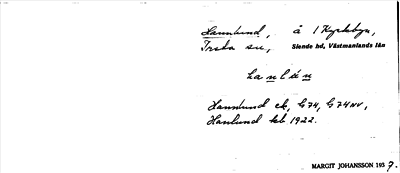 Hamnlund, å 1 Kyrkbyn,
Irsta sn, Siende hd, Västmanlands län
hanlún
Hamnlund ek, G74, G74NV,
Hamlund kb 1922.
MARGIT JOHANSSON 1937.